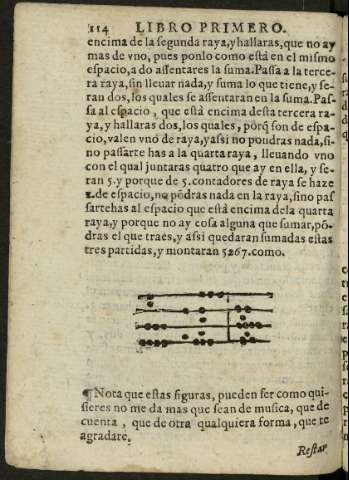 114 LIBRO PRIMERO.
encima de la segunda raya, y hallaras, que no ay
mas de vno, pues ponlo como està en el mismo
espacio, a do assentares la suma. Passa a la terce-
ra raya, sin lleuar nada, y suma lo que tiene, y se-
ran dos, los quales se assentaran en la suma. Pas-
sa al espacio, que està encima desta tercera ra-
ya, y hallaras dos, los quales, porq̃ son de espa-
cio, valen vno de raya, y assi no pondras nada, si-
no passarte has a la quarta raya, lleuando vno
con el qual juntaras quatro que ay en ella, y se-
ran 5. y porque de 5. contadores de raya se haze
1. de espacio, no põdras nada en la raya, sino pas
sartehas al espacio que està encima dela quarta
raya, y porque no ay cosa alguna que sumar, põ-
dras el que traes, y assi quedaran sumadas estas
tres partidas, y montaran 5267. como.
¶ Nota que estas figuras, pueden ser como qui-
sieres no me da mas que sean de musica, que de
cuenta, que de otra qualquiera forma, que te
agradare.
Restar